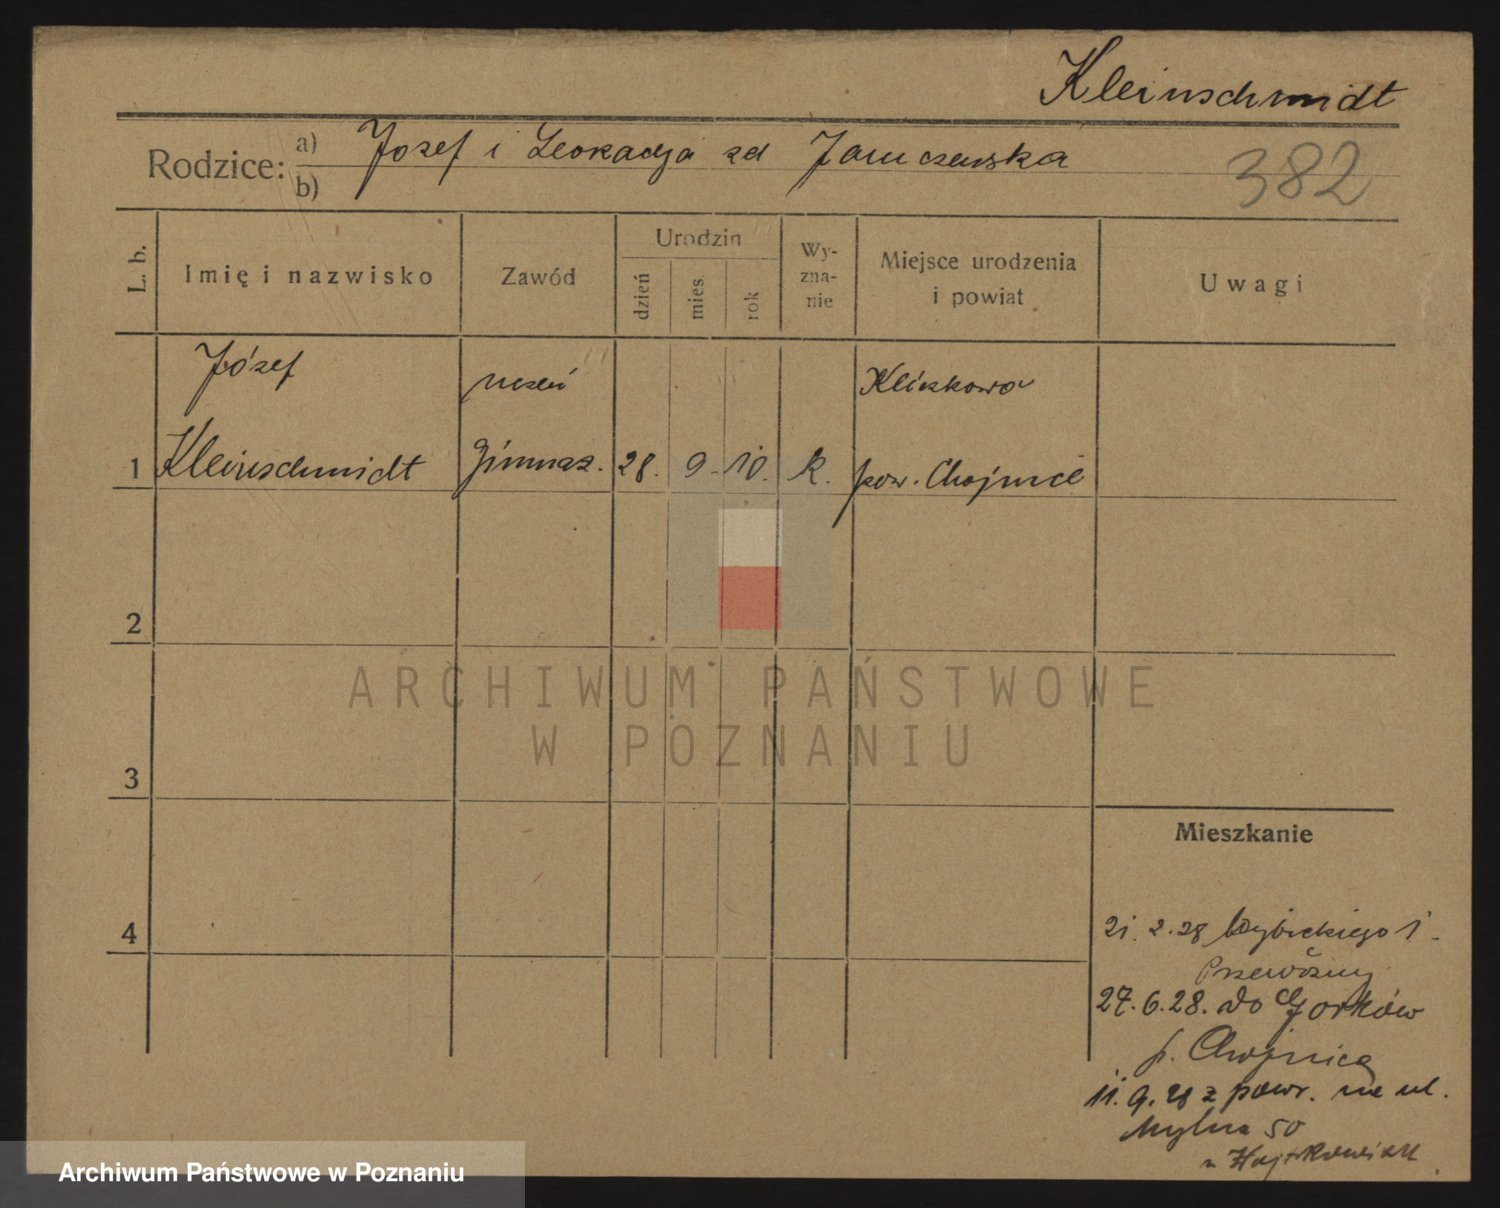 Kleinschmidt
Rodzice: a) Józef i Leokadja zd Jamczewska
b)
382
L. b.
Imię i nazwisko
Zawód
Urodzin
dzień
mies.
rok
Wy-
zna-
nie
Miejsce urodzenia
i powiat
Uwagi
Józef uczeń Kliczkowo
1 Kleinschmidt gimnaz. 28. 9. 10. k. pow. Chojnice
2
ARCHIWUM PAŃSTWOWE
W POZNANIU
3
Mieszkanie
4
21. 2. 28 Wybickiego 1.
27. 6. 28. do
p. Chojnice
11. 9. 28 z powr. na ul.
Mylna 50
Archiwum Państwowe w Poznaniu